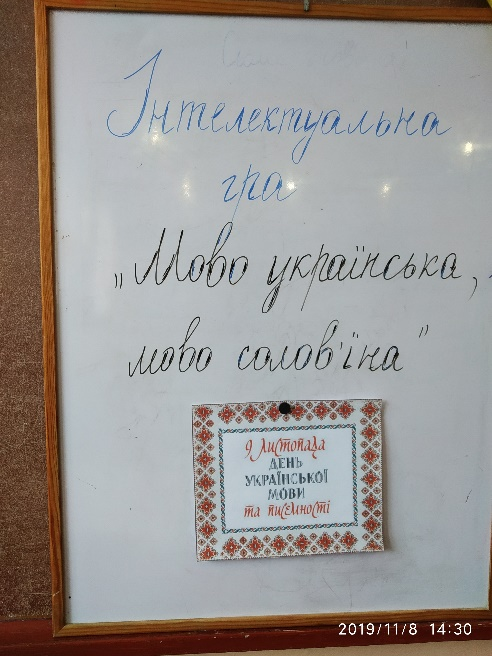 Інтелектуальна
гра
„Мово українська,
мово солов'їна"
9 листопада
ДЕНЬ
УКРАЇНСЬКОЇ
МОВИ
та писемності
2019/11/8 14:30